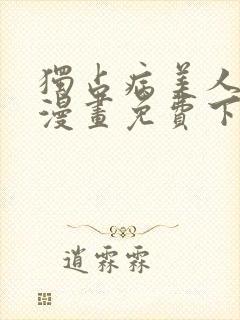 獨占病美人
漫畫免費下
逍霖霖